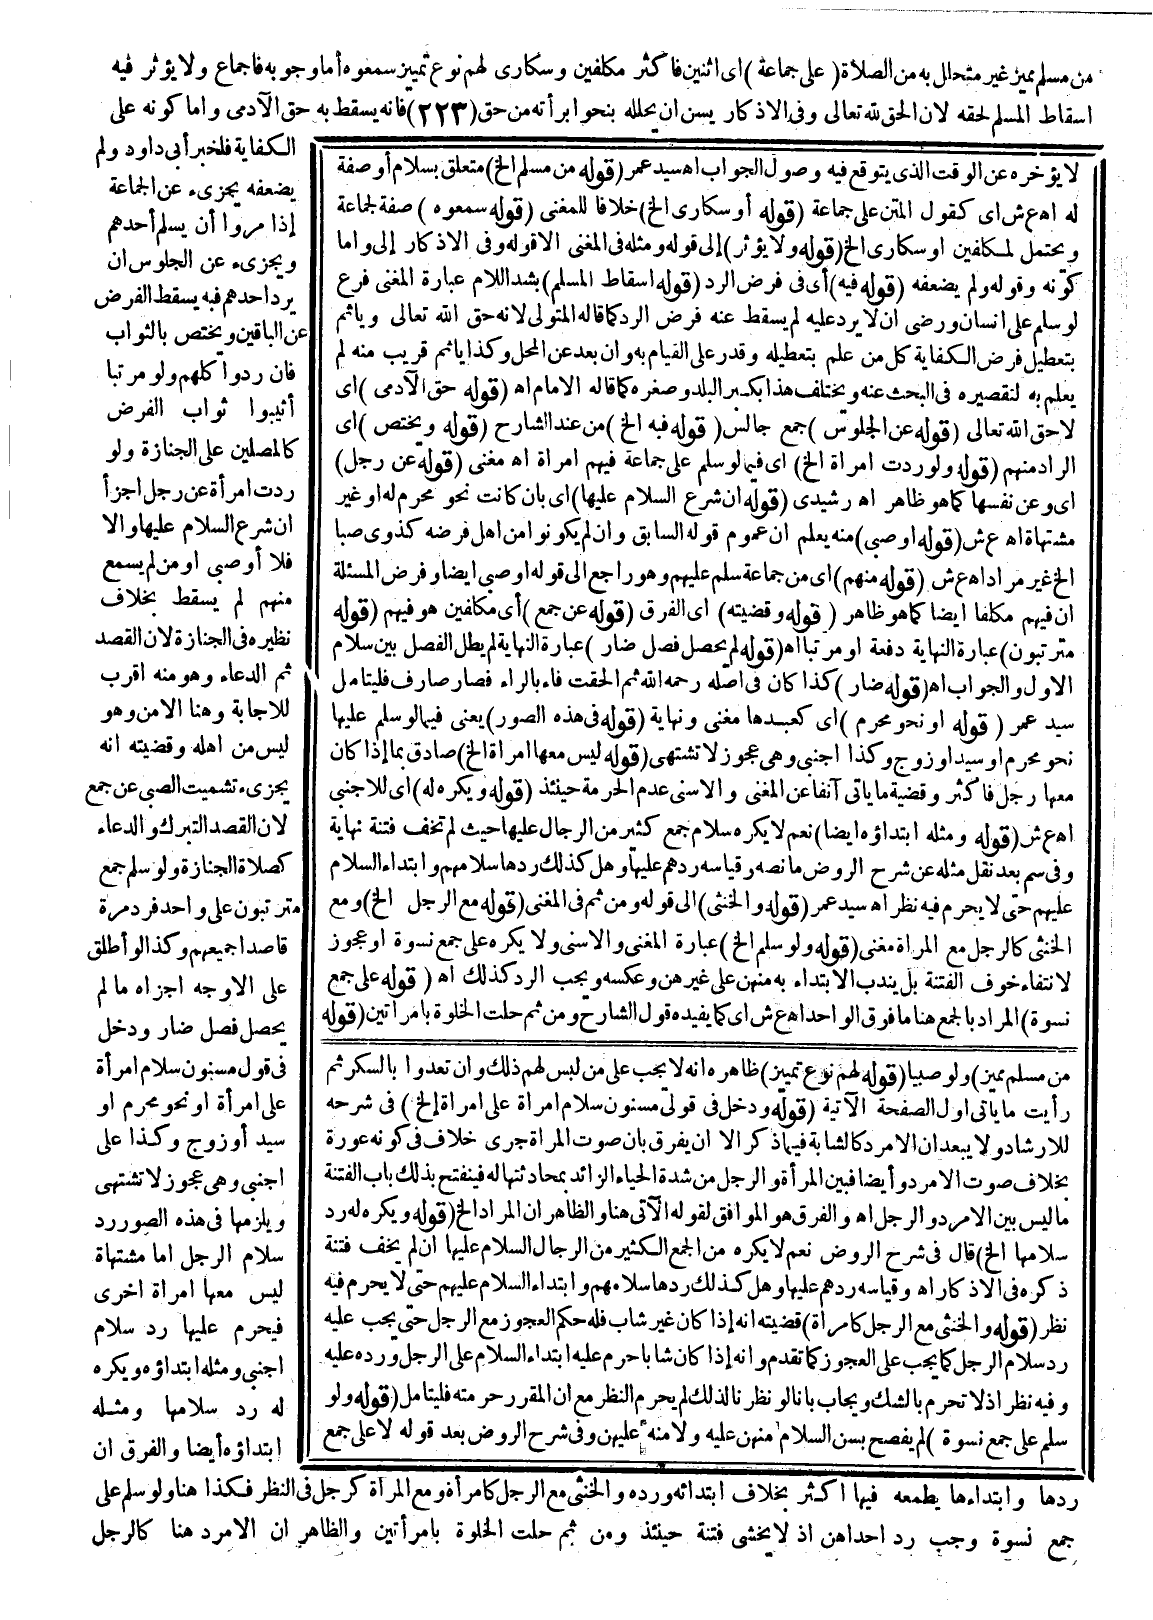 من مسلم مميز غير متحلل به من الصلاة (على جماعة) اى اثنين فاكثر مكلفين وسكارى لهم نوع تمييز سمعوه أما وجوبه فاجماع ولا يؤثر فيه
اسقاط المسلم لحقه لان الحق لله تعالى وفى الاذكار يسن ان يحلله بنحو ابرأته من حق (٢٢٣) فانه يسقط به حق الآدمى واما كونه على
الكفاية فلخبر أبى داود ولم
يضعفه يجزىء عن الجماعة
إذا مروا أن يسلم أحدهم
ويجزىء عن الجلوس ان
يرد احدهم فبه يسقط الفرض
عن الباقين ويختص بالثواب
فان ردوا كلهم ولو مرتبا
أثيبوا ثواب الفرض
كالمصلين على الجنازة ولو
ردت امرأة عن رجل اجزأ
ان شرع السلام عليها والا
فلا أو صبى او من لم يسمع
منهم لم يسقط بخلاف
نظيره فى الجنازة لان القصد
ثم الدعاء وهو منه اقرب
للاجابة وهنا الامن وهو
ليس من اهله وقضيته انه
يجزىء تشميت الصبى عن جمع
لان القصد التبرك والدعاء
كصلاة الجنازة ولو سلم جمع
مترتبون على واحد فرد مرة
قاصدا جميعهم وكذا لو أطلق
على الاوجه اجزاه ما لم
يحصل فصل ضار ودخل
فى قول مسنون سلام امرأة
على امرأة او نحو محرم او
سيد أو زوج وكذا على
اجنبى وهى عجوز لا تشتهى
ويلزمها فى هذه الصور رد
سلام الرجل اما مشتهاة
ليس معها امرأة اخرى
فيحرم عليها رد سلام
اجنبى ومثله ابتداؤه ويكره
له رد سلامها ومثله
ابتداؤه أيضا والفرق ان
ردها وابتداءها يطمعه فيها اكثر بخلاف ابتدائه ورده والخنثى مع الرجل كامرأة ومع المرأة كرجل فى النظر فكذا هنا ولو سلم على
جمع نسوة وجب رد احداهن اذ لا يخشى فتنة حينئذ ومن ثم حلت الخلوة بامرأتين والظاهر ان الامرد هنا كالرجل
لا يؤخره عن الوقت الذى يتوقع فيه وصول الجواب اه سيد عمر (قوله من مسلم الخ) متعلق بسلام أو صفة
له اه ع ش اى كقول المتن على جماعة (قوله أو سكارى الخ) خلافا للمغنى (قوله سمعوه) صفة لجماعة
ويحتمل لمكلفين او سكارى الخ (قوله ولا يؤثر) إلى قوله ومثله فى المغنى الا قوله وفى الاذكار إلى واما
كونه وقوله ولم يضعفه (قوله فيه) أى فى فرض الرد (قوله اسقاط المسلم) بشد اللام عبارة المغنى فرع
لو سلم على انسان ورضى ان لا يرد عليه لم يسقط عنه فرض الرد كما قاله المتولى لانه حق الله تعالى ويأثم
بتعطيل فرض الكفاية كل من علم بتعطيله وقدر على القيام به وان بعد عن المحل وكذا يأثم قريب منه لم
يعلم به لتقصيره فى البحث عنه ويختلف هذا بكبر البلد وصغره كما قاله الامام اه (قوله حق الآدمى) اى
لا حق الله تعالى (قوله عن الجلوس) جمع جالس (قوله فبه الخ) من عند الشارح (قوله ويختص) اى
الراد منهم (قوله ولو ردت امرأة الخ) اى فيما لو سلم على جماعة فيهم امرأة اه مغنى (قوله عن رجل)
اى وعن نفسها كما هو ظاهر اه رشيدى (قوله ان شرع السلام عليها) اى بان كانت نحو محرم له او غير
مشتهاة اه ع ش (قوله او صبى) منه يعلم ان عموم قوله السابق وان لم يكونوا من اهل فرضه كذوى صبا
الخ غير مراد اه ع ش (قوله منهم) اى من جماعة سلم عليهم وهو راجع الى قوله او صبى ايضا وفرض المسئلة
ان فيهم مكلفا ايضا كما هو ظاهر (قوله وقضيته) اى الفرق (قوله عن جمع) أى مكلفين هو فيهم (قوله
مترتبون) عبارة النهاية دفعة او مرتبا اه (قوله لم يحصل فصل ضار) عبارة النهاية لم يطل الفصل بين سلام
الاول والجواب اه (قوله ضار) كذا كان فى اصله رحمه الله ثم الحقت فاء بالراء فصار صارف فليتامل
سيد عمر (قوله او نحو محرم) اى كعبدها مغنى ونهاية (قوله فى هذه الصور) يعنى فيما لو سلم عليها
نحو محرم او سيد او زوج وكذا اجنبى وهى عجوز لا تشتهى (قوله ليس معها امرأة الخ) صادق بما إذا كان
معها رجل فاكثر وقضية ما ياتى آنفا عن المغنى والاسنى عدم الحرمة حينئذ (قوله ويكره له) اى للاجنبى
اه ع ش (قوله ومثله ابتداؤه ايضا) نعم لا يكره سلام جمع كثير من الرجال عليها حيث لم تخف فتنة نهاية
وفى سم بعد نقل مثله عن شرح الروض ما نصه وقياسه ردهم عليها وهل كذلك ردها سلامهم وابتداء السلام
عليهم حتى لا يحرم فيه نظر اه سيد عمر (قوله والخنثى) الى قوله ومن ثم فى المغنى (قوله مع الرجل الخ) ومع
الخنثى كالرجل مع المرأة مغنى (قوله ولو سلم الخ) عبارة المغنى والاسنى ولا يكره على جمع نسوة او عجوز
لانتفاء خوف الفتنة بل يندب الابتداء به منهن على غيرهن وعكسه ويجب الرد كذلك اه (قوله على جمع
نسوة) المراد بالجمع هنا ما فوق الواحد اه ع ش اى كما يفيده قول الشارح ومن ثم حلت الخلوة بامرأتين (قوله
من مسلم مميز) ولو صبيا (قوله لهم نوع تمييز) ظاهره انه لا يجب على من ليس لهم ذلك وان تعدوا بالسكر ثم
رأيت ما ياتى اول الصفحة الآتية (قوله ودخل فى قولى مسنون سلام امرأة على امرأة إلخ) فى شرحه
للارشاد ولا يبعد ان الامرد كالشابة فيما ذكر الا ان يفرق بان صوت المرأة جرى خلاف فى كونه عورة
بخلاف صوت الامرد وأيضا فبين المرأة والرجل من شدة الحياء الزائد بمحادثتها له فينفتح بذلك باب الفتنة
ما ليس بين الامرد والرجل اه والفرق هو الموافق لقوله الآتى هنا والظاهر ان المراد الخ (قوله ويكره له رد
سلامها الخ) قال فى شرح الروض نعم لا يكره من الجمع الكثير من الرجال السلام عليها ان لم يخف فتنة
ذكره فى الاذكار اه وقياسه ردهم عليها وهل كذلك ردها سلامهم وابتداء السلام عليهم حتى لا يحرم فيه
نظر (قوله والخنثى مع الرجل كامرأة) قضيته انه إذا كان غير شاب فله حكم العجوز مع الرجل حتى يجب عليه
رد سلام الرجل كما يجب على العجوز كما تقدم وانه إذا كان شابا حرم عليه ابتداء السلام على الرجل ورده عليه
وفيه نظر اذ لا تحرم بالشك ويجاب بانا لو نظرنا لذلك لم يحرم النظر مع ان المقرر حرمته فليتامل (قوله ولو
سلم على جمع نسوة) لم يفصح بسن السلام منهن عليه ولا منه عليهن وفى شرح الروض بعد قوله لا على جمع